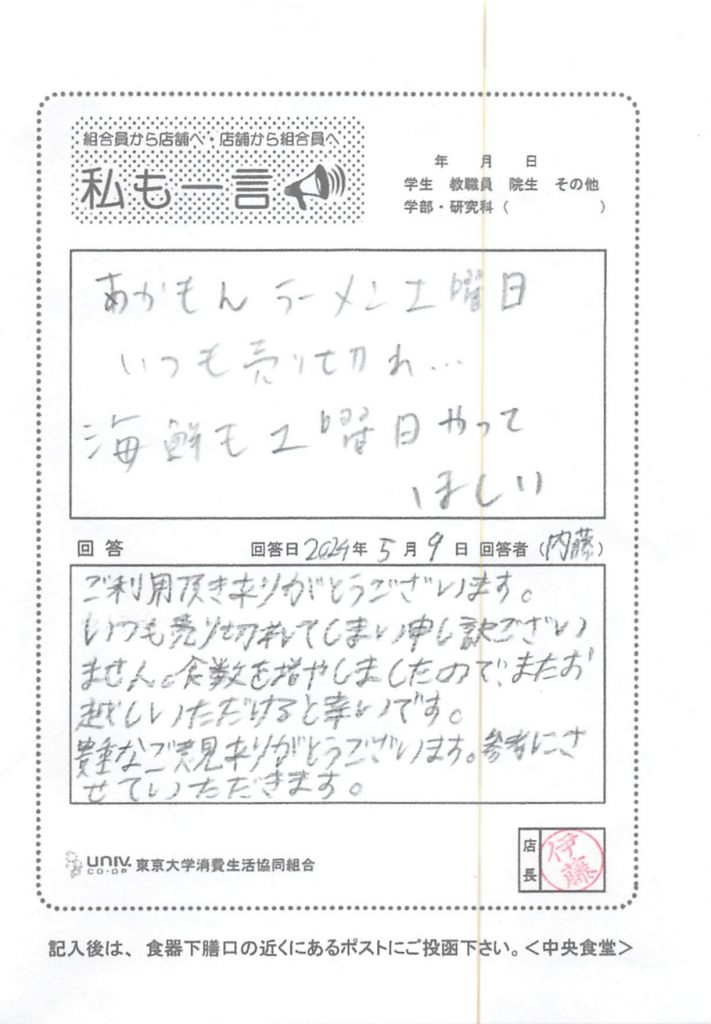 組合員から店舗へ・店舗から組合員へ
私も一言
年 月 日
学生 教職員 院生 その他
学部・研究科 ( )
あかもんラーメン土曜日
いつも売り切れ…
海鮮も土曜日やって
ほしい
回答 回答日 2024年 5月 9日 回答者 (内藤)
ご利用頂きありがとうございます。
いつも売り切れてしまい申し訳ござい
ません。食数を増やしましたので、またお
越しいただけると幸いです。
貴重なご意見ありがとうございます。参考にさ
せていただきます。
UNIV. CO-OP 東京大学消費生活協同組合
店長 伊藤
記入後は、食器下膳口の近くにあるポストにご投函下さい。<中央食堂>